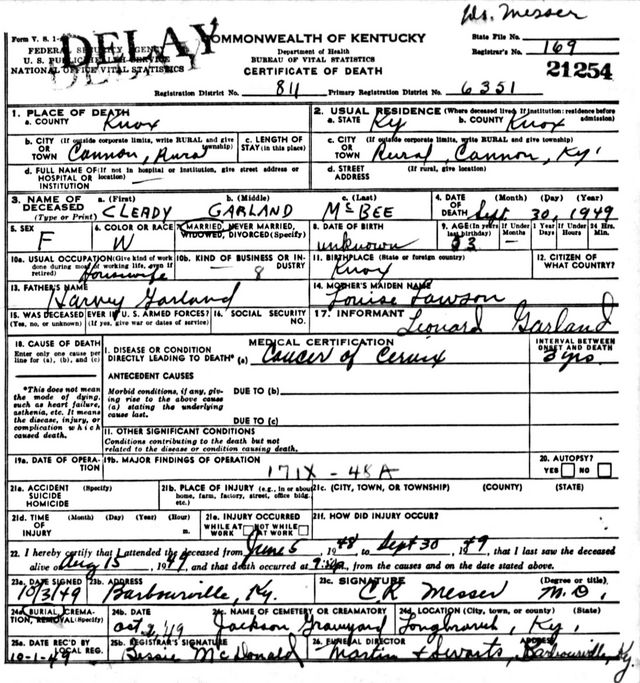 Dr. Messer
Form V. S. 1-
DELAY
COMMONWEALTH OF KENTUCKY
State File No.
FEDERAL SECURITY AGENCY
U. S. PUBLIC HEALTH SERVICE
NATIONAL OFFICE VITAL STATISTICS
Department of Health
BUREAU OF VITAL STATISTICS
CERTIFICATE OF DEATH
Registrar's No. 169
21254
Registration District No. 811 Primary Registration District No. 6351
1. PLACE OF DEATH
a. COUNTY Knox
2. USUAL RESIDENCE (Where deceased lived. If institution: residence before admission)
a. STATE Ky b. COUNTY Knox
b. CITY (If outside corporate limits, write RURAL and give township)
OR TOWN Cannon, Rural
c. LENGTH OF STAY (in this place)
c. CITY (If outside corporate limits, write RURAL and give township)
OR TOWN Rural, Cannon, Ky.
d. FULL NAME OF (If not in hospital or institution, give street address or location)
HOSPITAL OR INSTITUTION —
d. STREET ADDRESS (If rural, give location)
3. NAME OF DECEASED (Type or Print)
a. (First) b. (Middle) c. (Last)
CLEADY GARLAND McBEE
4. DATE OF DEATH (Month) (Day) (Year)
Sept 30, 1949
5. SEX F
6. COLOR OR RACE W
7. MARRIED, NEVER MARRIED, WIDOWED, DIVORCED (Specify)
8. DATE OF BIRTH unknown
9. AGE (In years last birthday) 53 If Under 1 Year — If Under 24 Hrs.
Months Days Hours Min.
10a. USUAL OCCUPATION (Give kind of work done during most of working life, even if retired) Housewife
10b. KIND OF BUSINESS OR INDUSTRY — 8
11. BIRTHPLACE (State or foreign country) Knox
12. CITIZEN OF WHAT COUNTRY?
13. FATHER'S NAME Harvey Garland
14. MOTHER'S MAIDEN NAME Louise Lawson
15. WAS DECEASED EVER IN U. S. ARMED FORCES?
(Yes, no, or unknown) (If yes, give war or dates of service)
16. SOCIAL SECURITY NO.
17. INFORMANT Leonard Garland
18. CAUSE OF DEATH
Enter only one cause per line for (a), (b), and (c)
MEDICAL CERTIFICATION
INTERVAL BETWEEN ONSET AND DEATH
I. DISEASE OR CONDITION DIRECTLY LEADING TO DEATH* (a) Cancer of Cervix 3 yrs
*This does not mean the mode of dying, such as heart failure, asthenia, etc. It means the disease, injury, or complication which caused death.
ANTECEDENT CAUSES
Morbid conditions, if any, giving rise to the above cause (a) stating the underlying cause last.
DUE TO (b)
DUE TO (c)
II. OTHER SIGNIFICANT CONDITIONS
Conditions contributing to the death but not related to the disease or condition causing death.
19a. DATE OF OPERATION
19b. MAJOR FINDINGS OF OPERATION
171X — 48A
20. AUTOPSY?
YES NO
21a. ACCIDENT SUICIDE HOMICIDE (Specify)
21b. PLACE OF INJURY (e.g., in or about home, farm, factory, street, office bldg. etc.)
21c. (CITY, TOWN, OR TOWNSHIP) (COUNTY) (STATE)
21d. TIME OF INJURY (Month) (Day) (Year) (Hour) m.
21e. INJURY OCCURRED
WHILE AT WORK NOT WHILE AT WORK
21f. HOW DID INJURY OCCUR?
22. I hereby certify that I attended the deceased from June 5, 1948 to Sept 30 1949, that I last saw the deceased
alive on Aug 15, 1949 and that death occurred at m., from the causes and on the date stated above.
23a. DATE SIGNED 10/3/49
23b. ADDRESS Barbourville, Ky.
23c. SIGNATURE CR Messer (Degree or title) M.D.
24a. BURIAL, CREMATION, REMOVAL (Specify)
24b. DATE Oct 2, '49
24c. NAME OF CEMETERY OR CREAMATORY Jackson Graveyard
24d. LOCATION (City, town, or county) (State) Ky.
25a. DATE REC'D BY LOCAL REG. 10-1-49
25b. REGISTRAR'S SIGNATURE Bessie McDonald
26. FUNERAL DIRECTOR ADDRESS
Martin & Swarts, Barbourville, Ky.